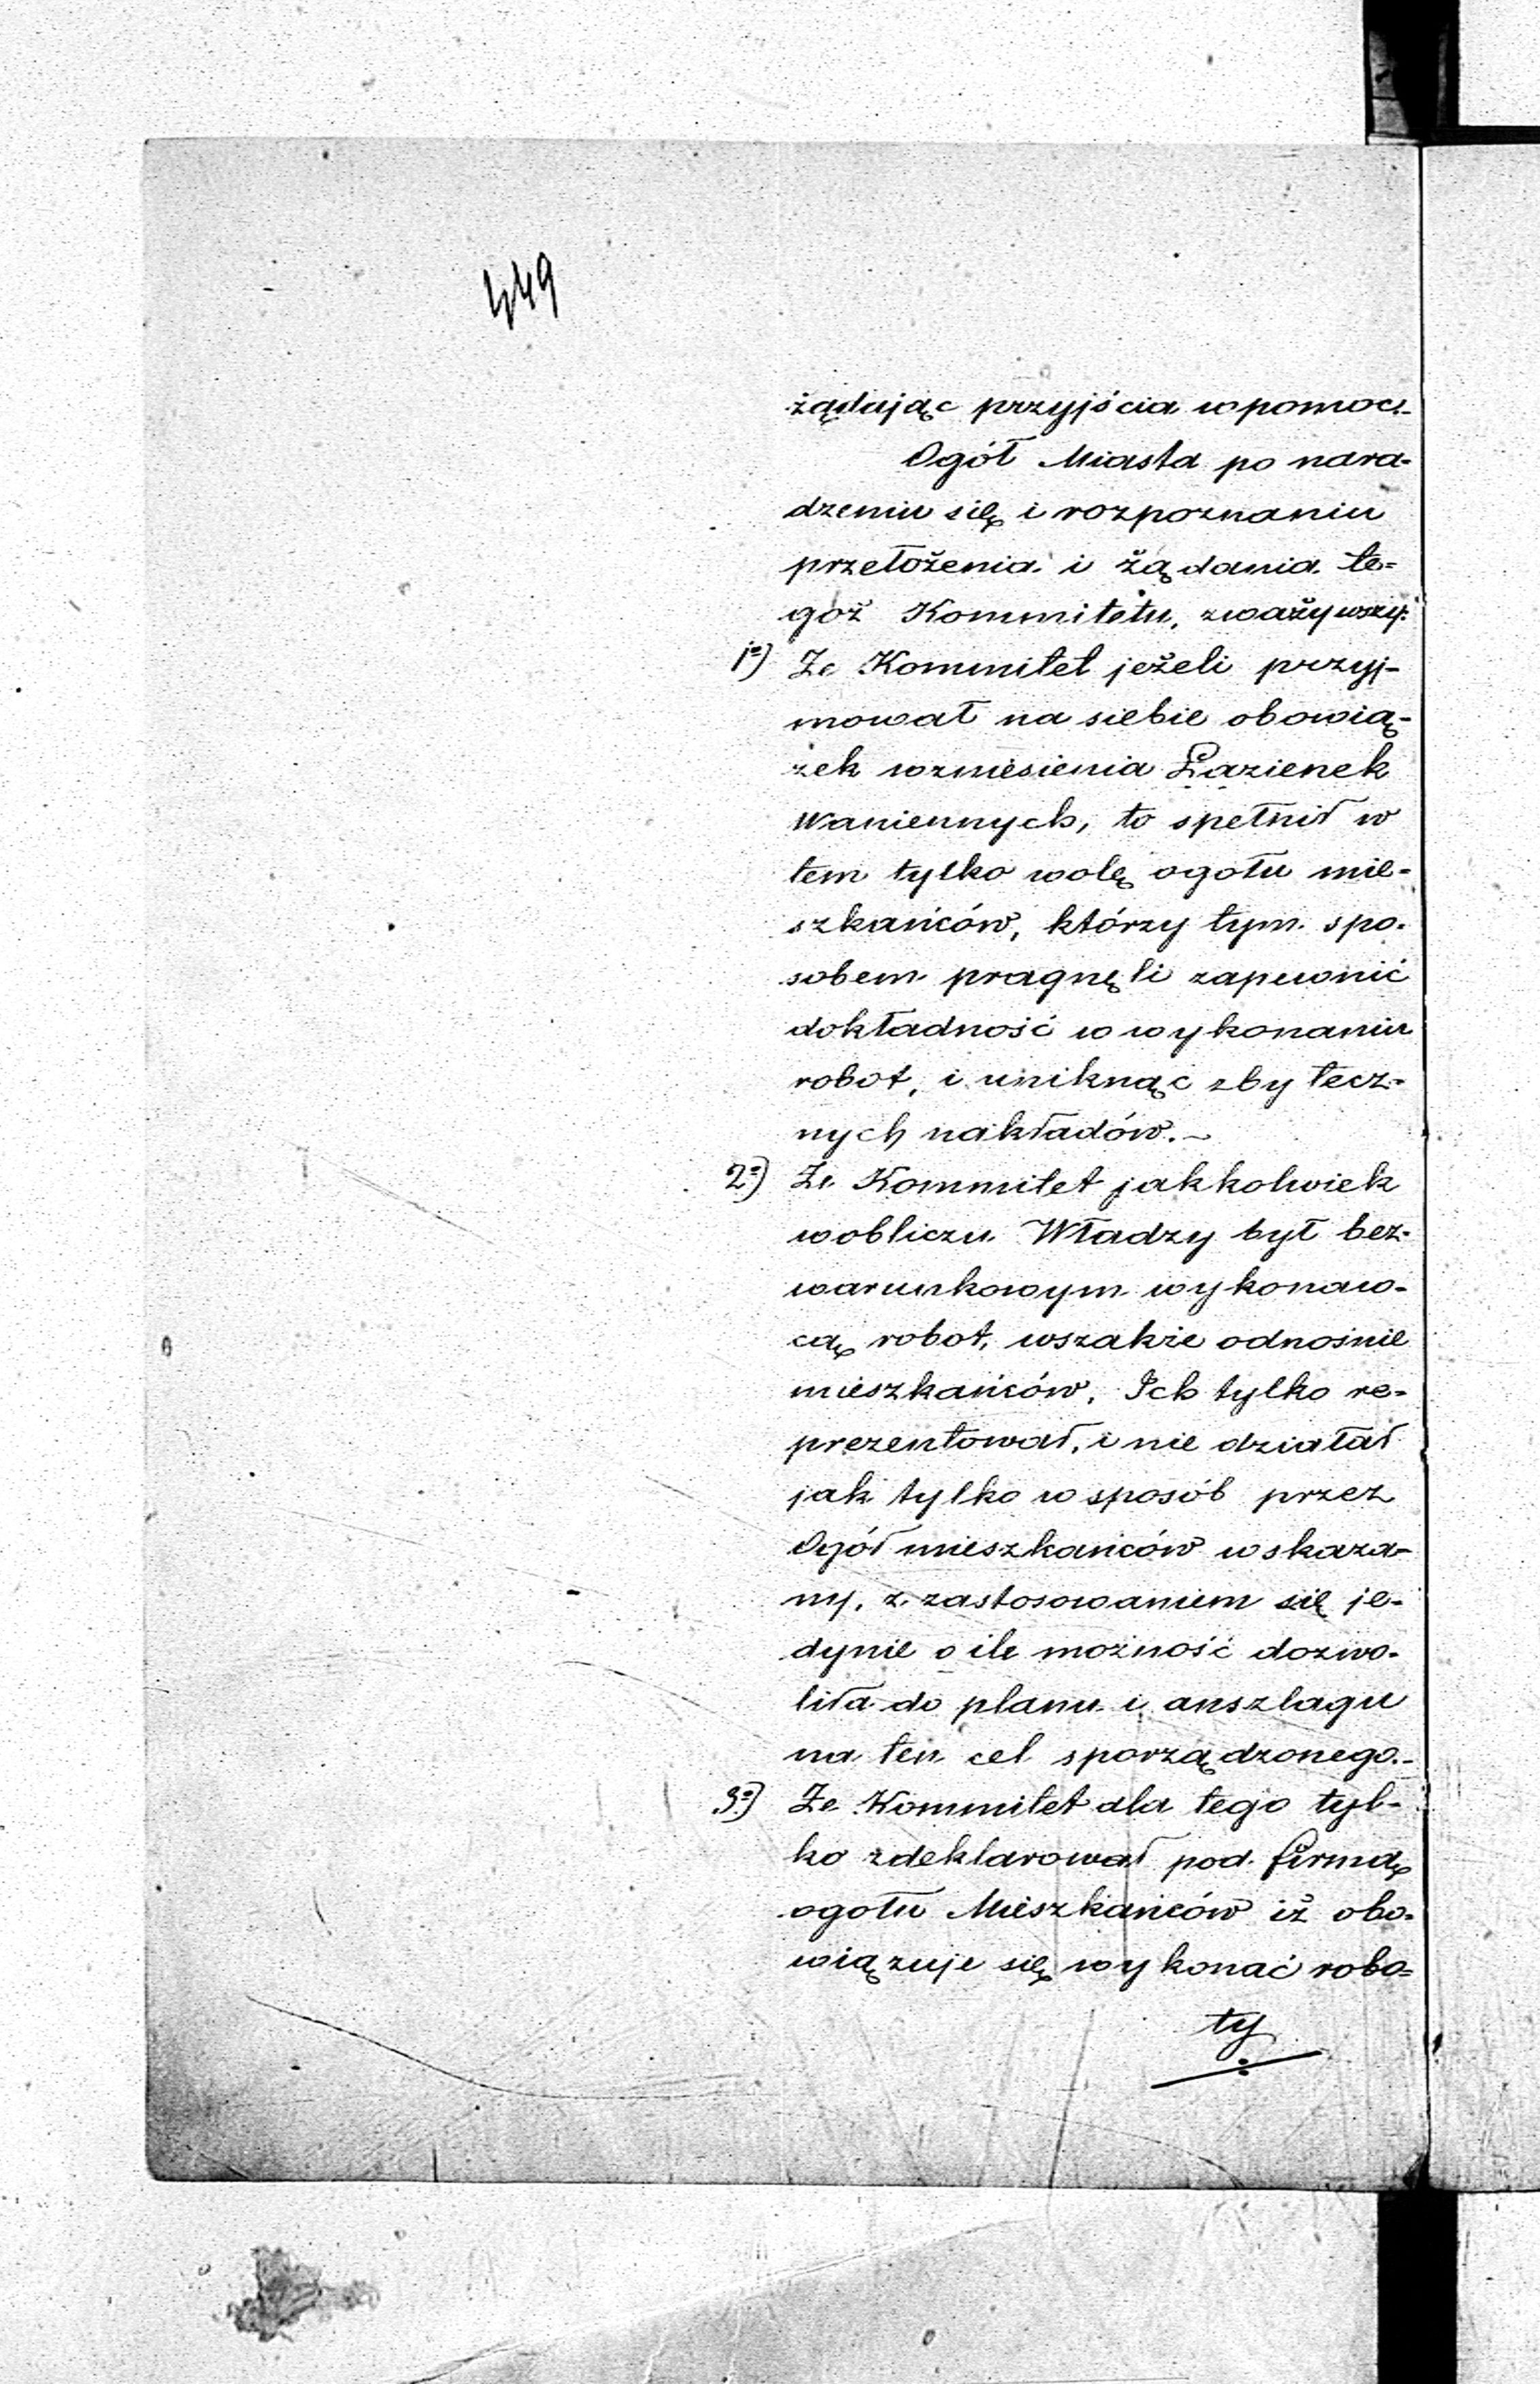 449
żądając przyjścia w pomoc.
Ogół Miasta po nara-
dzeniu się i rozpoznaniu
przełożenia i żądania te-
goż Kommitetu, zważywszy:
1º) Że Kommitet jeżeli przyj-
mował na siebie obowią-
zek wzniesienia Łazienek
Waniennych, to spełnił w
tem tylko wolę ogołu mie-
szkańców, którzy tym spo-
sobem pragnęli zapewnić
dokładność w wykonaniu
robot, i uniknąć zbytecz-
nych nakładów.-
2º) Że Kommitet jakkolwiek
wobliczu Władzy był bez-
warunkowym wykonaw-
cą robot, wszakże odnośnie
mieszkańców, Ich tylko re-
prezentował, i nie działał
jak tylko w sposób przez
Ogół mieszkańców wskaza-
ny, z zastosowaniem się je-
dynie o ile możność dozwo-
liła do planu i anszlagu
na ten cel sporządzonego.-
3º) Że Kommitet dla tego tyl-
ko zdeklarował pod firmą
ogołu Mieszkańców iż obo-
wiązuje się wykonać robo-
ty